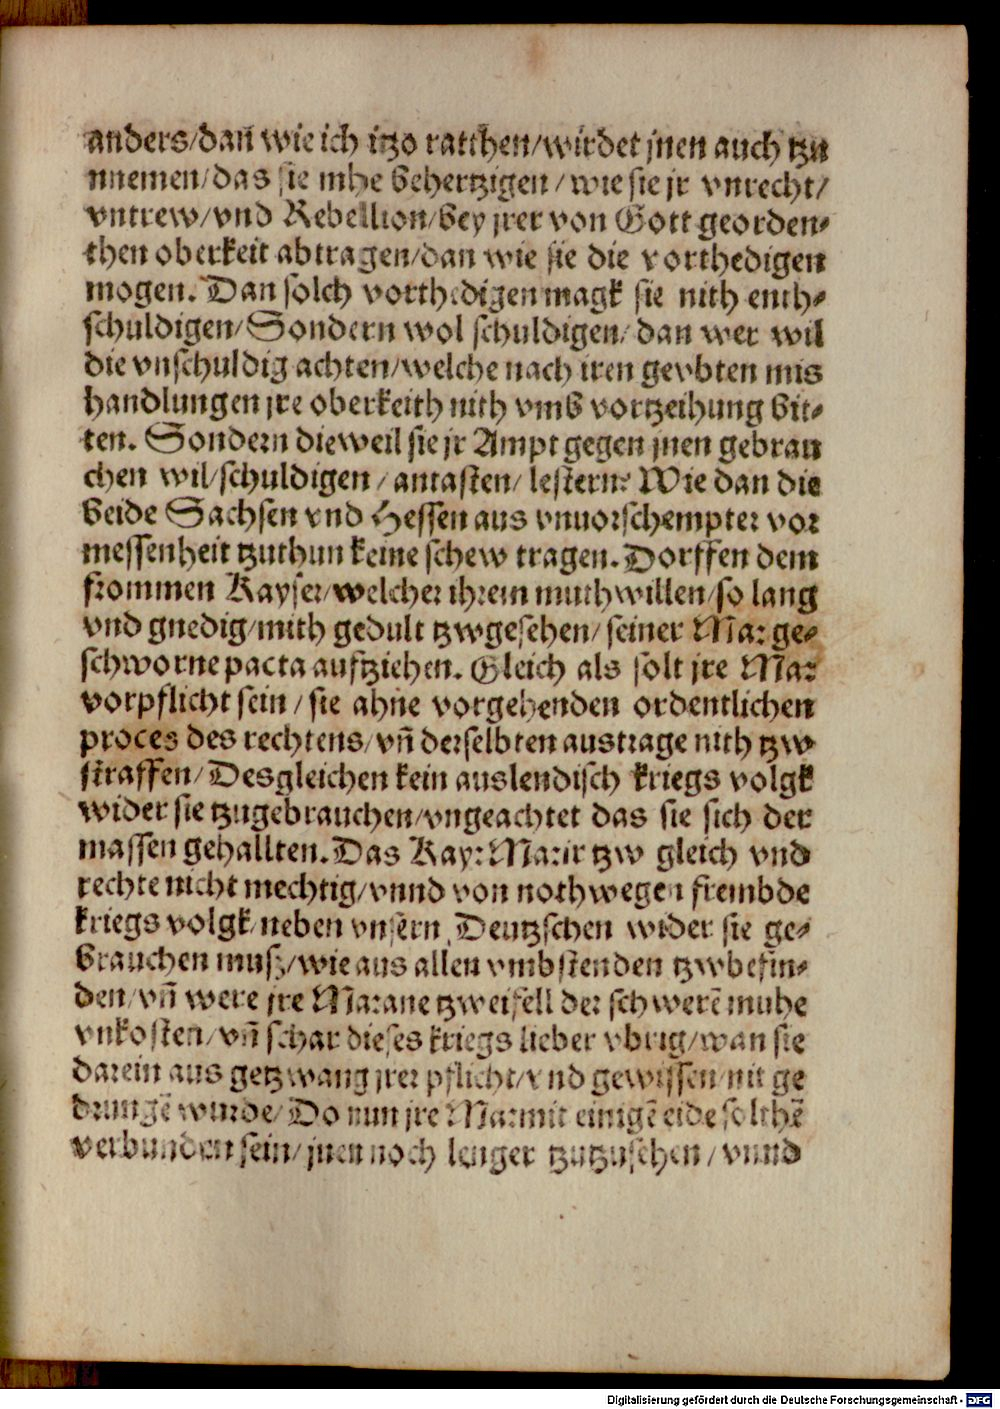 anders/dañ wie ich itzo ratthen/wirdet jnen auch tzu
nnemen/das sie mhe behertzigen/wie sie jr vnrecht/
vntrew/vnd Rebellion/bey jrer von Gott georden⸗
then oberkeit abtragen/dan wie sie die vorthedigen
mogen. Dan solch vorthedigen magk sie nith enth⸗
schuldigen/Sondern wol schuldigen/dan wer wil
die vnschuldig achten/welche nach iren gevbten mis
handlungen jre oberkeith nith vmb vortzeihung bit⸗
ten. Sondern dieweil sie jr Ampt gegen jnen gebrau
chen wil/schuldigen/antasten/lestern: Wie dan die
beide Sachsen vnd Hessen aus vnuorschempter vor
messenheit tzuthun keine schew tragen. Dorffen dem
frommen Kayser/welcher ihrem muthwillen/so lang
vnd gnedig/mith gedult tzwgesehen/seiner Ma: ge⸗
schworne pacta auftziehen. Gleich als solt jre Ma:
vorpflicht sein/sie ahne vorgehenden ordentlichen
proces des rechtens/vñ derselbten austrage nith tzw
straffen/Desgleichen kein auslendisch kriegs volgk
wider sie tzugebrauchen/vngeachtet das sie sich der
massen gehallten. Das Kay: Ma: ir tzw gleich vnd
rechte nicht mechtig/vnnd von nothwegen frembde
kriegs volgk/neben vnsern Deutzschen wider sie ge⸗
brauchen musz/wie aus allen vmbstenden tzwbefin⸗
den/vñ were jre Ma: ane tzweifell der schwerẽ muhe
vnkosten/vñ schar dieses kriegs lieber vbrig/wan sie
darein aus getzwang jrer pflicht/vnd gewissen nit ge
drungẽ wurde/Do nun jre Ma: mit einigẽ eide solthẽ
verbunden sein/jnen noch lenger tzutzusehen/vnnd
Digitalisierung gefördert durch die Deutsche Forschungsgemeinschaft - DFG